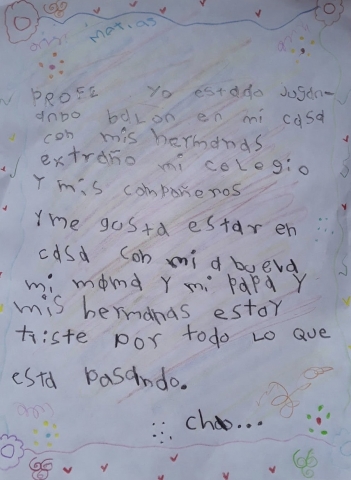 matias
PROFE Yo estado Jugan-
ando balon en mi casa
con mis hermanas
extraño mi colegio
Y mis compañeros
Y me gusta estar en
casa con mi abuela
mi mama Y mi papa Y
mis hermanas estoy
triste por todo lo que
esta pasando.
chao...